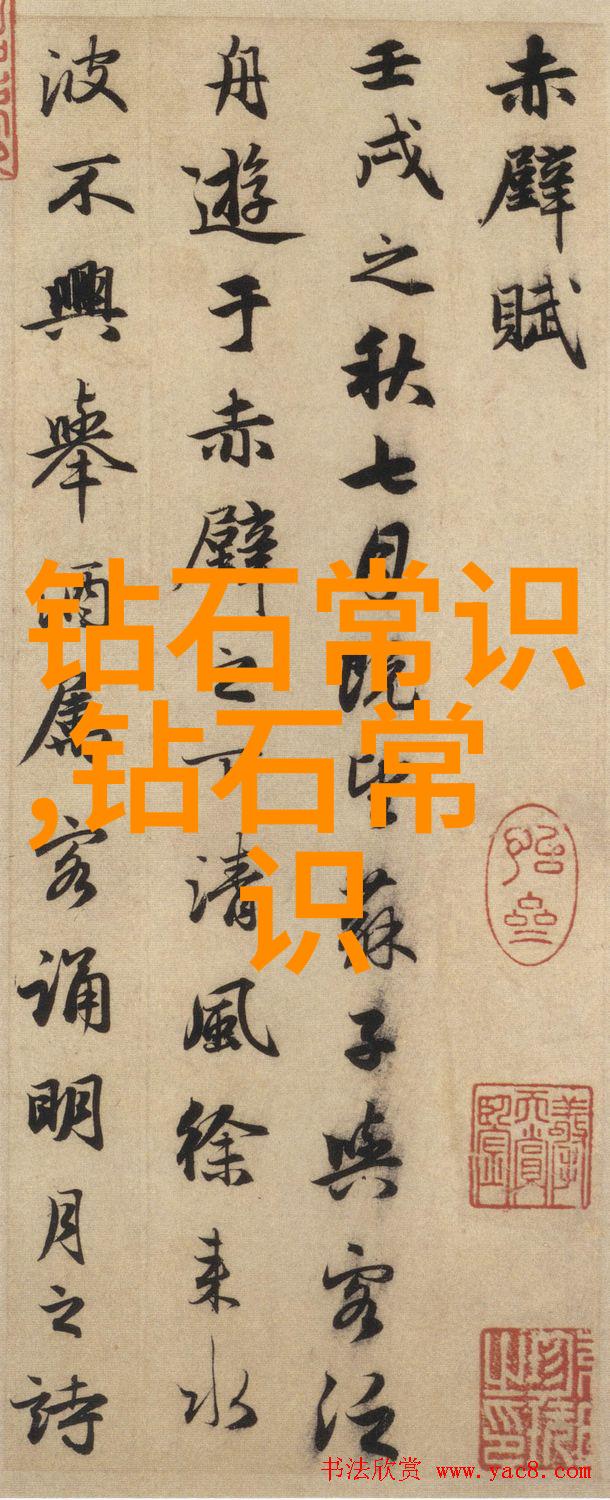 赤壁賦
壬戌之秋七月既望蘇子與客泛
舟遊于赤壁之下清風徐来水
波不興舉酒屬客誦明月之詩
钻石常识
,钻石常
识
书法欣赏 www.yac8.com